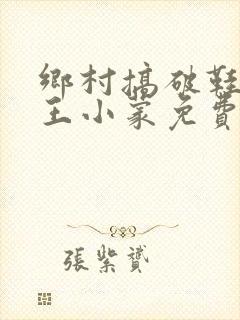 鄉村搞破鞋
王小冢免費
張紫贇